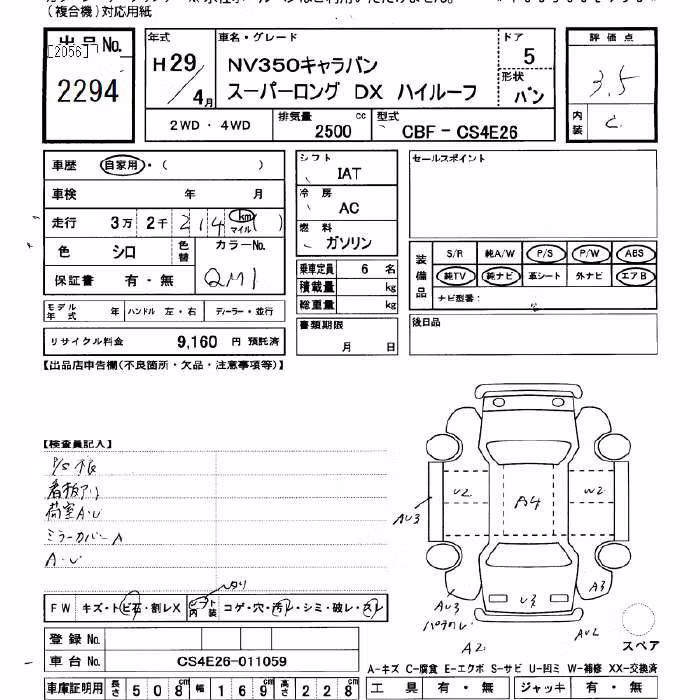 (複合機)対応用紙
出品No.
[2056]
2294
年式
H29/4月
車名・グレード
NV350キャラバン
スーパーロング DX ハイルーフ
ドア
5
形状
バン
評価点
3.5
内装
C
2WD・4WD
排気量
2500 cc
型式
CBF-CS4E26
車歴 自家用・( )
車検 年 月
走行 3万 2千 214 km マイル ( )
色 シロ 色替 カラーNo.
QM1
保証書 有・無
モデル年式 年 ハンドル 左・右 ディーラー・並行
リサイクル料金 9,160 円 預託済
シフト
IAT
冷房
AC
燃料
ガソリン
乗車定員 6 名
積載量 kg
総重量 kg
書類期限
月 日
セールスポイント
装備品
S/R 純A/W P/S P/W ABS
純TV 純ナビ 革シート 外ナビ エアB
ナビ型番:
後日品
【出品店申告欄(不良箇所・欠品・注意事項等)】
【検査員記入】
P/S不良
看板アリ
荷室A・U
ミラーカバーA
A・U
U2
W2
A4
AU3
AU3
U3
A3
A2
AU2
スペア
FW キズ・トビ石・割レX
内装 コゲ・穴・汚レ・シミ・破レ・スレ
登録No.
車台No. CS4E26-011059
車庫証明用 長さ 508cm 幅 169cm 高さ 228cm
A-キズ C-腐食 E-エクボ S-サビ U-凹ミ W-補修 XX-交換済
工具 有・無 ジャッキ 有・無